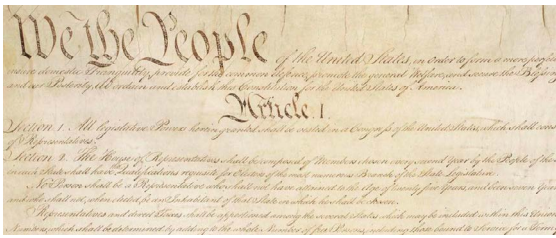 We the People of the United States, in Order to form a more perfect
insure domestic Tranquility, provide for the common defence, promote the general Welfare, and secure the Blessings
and our Posterity, do ordain and establish this Constitution for the United States of America.
Article. I.
Section. 1. All legislative Powers herein granted shall be vested in a Congress of the United States, which shall consist
of Representatives.
Section. 2. The House of Representatives shall be composed of Members chosen every second Year by the People of the
in each State shall have the Qualifications requisite for Electors of the most numerous Branch of the State Legislature.
No Person shall be a Representative who shall not have attained to the Age of twenty five Years, and been seven Years
and who shall not, when elected, be an Inhabitant of that State in which he shall be chosen.
Representatives and direct Taxes shall be apportioned among the several States which may be included within this Union
Numbers, which shall be determined by adding to the whole Number of free Persons, including those bound to Service for a Term